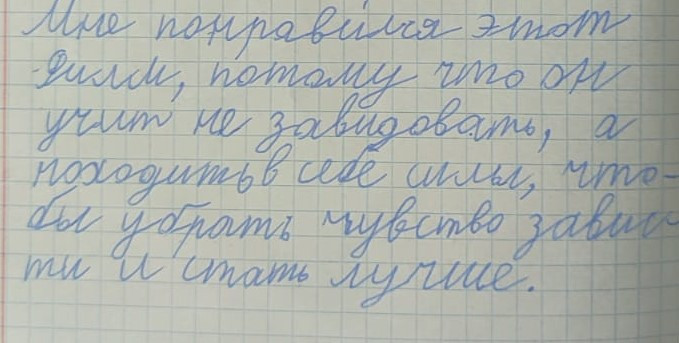 Мне понравился этот
филм, потому что он
учит не завидовать, а
находить в себе силы, что-
бы убрать чувство завис-
ти и стать лучше.